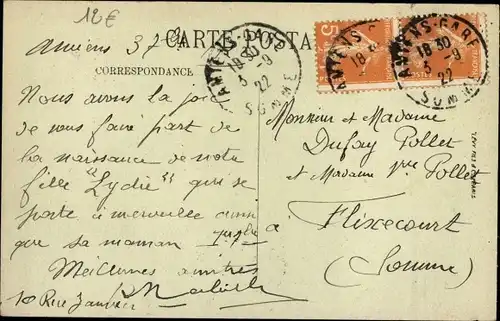 12€
CARTE POSTALE
Amiens 3 7 9
CORRESPONDANCE
AMIENS-GARE
18 30
3-9
22
SOMME
AMIENS-GARE
18 30
3-9
22
SOMME
Nous avons la joie
de vous faire part de
la naissance de notre
fille "Lydie" qui se
porte à merveille ainsi
que sa maman
Meilleures amitiés
10 Rue
Monsieur et Madame
Dufay Pollet
et Madame Vve Pollet
à
Flixecourt
(Somme)